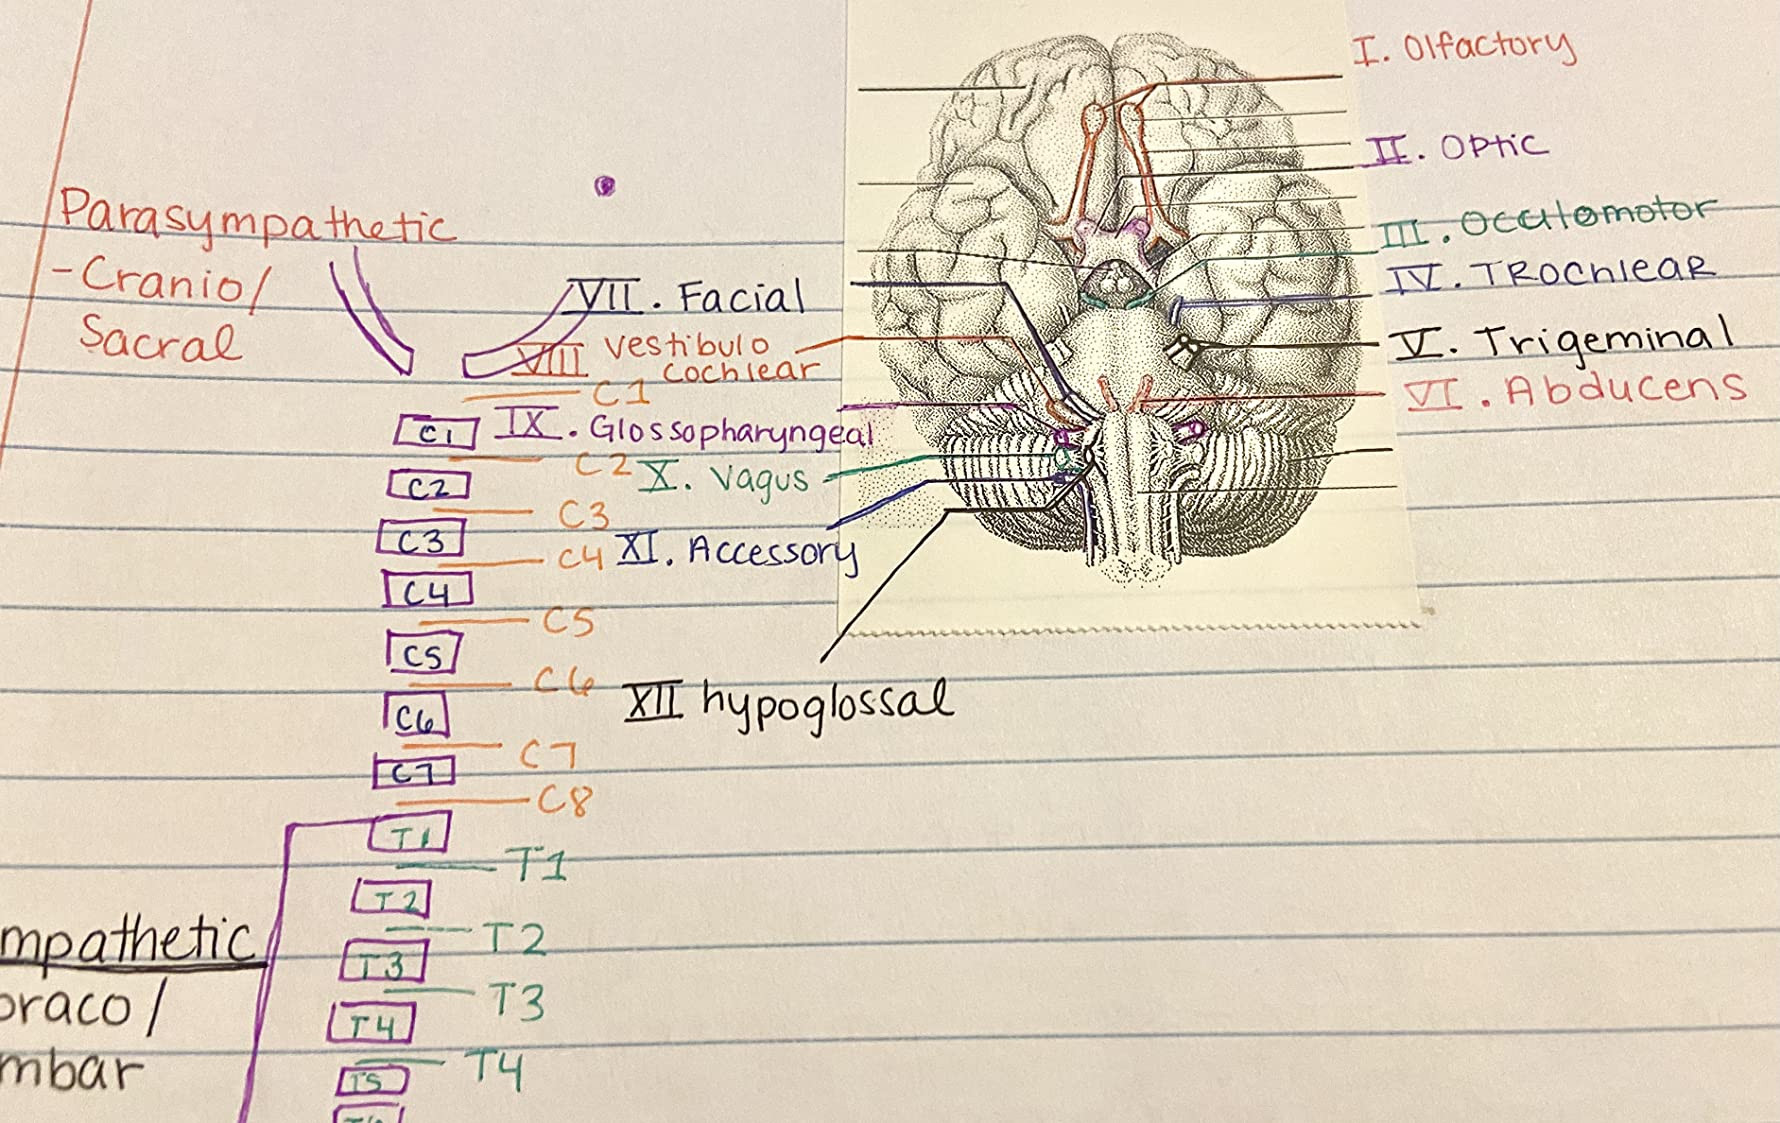 I. Olfactory
II. Optic
III. Oculomotor
IV. TROchleaR
V. Trigeminal
VI. Abducens
Parasympathetic
-Cranio/
Sacral
VII. Facial
VIII vestibulo
cochlear
C1
C1
IX. Glossopharyngeal
C2
X. vagus
C2
C3
C3
C4
XI. Accessory
C4
C5
C5
C6
XII hypoglossal
C6
C7
C7
C8
T1
T1
T2
mpathetic
T2
T3
oraco/
T3
T4
mbar
T4
T5